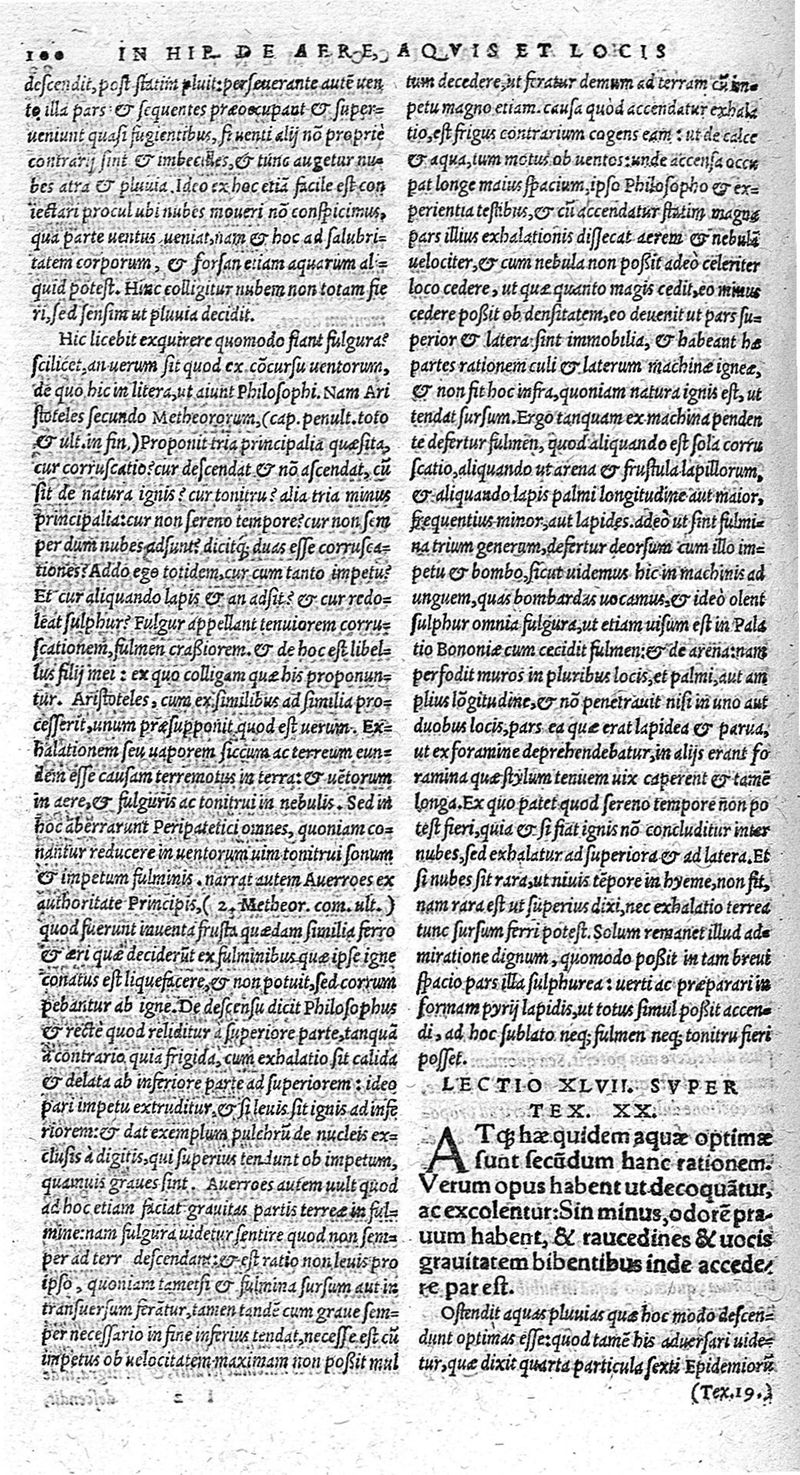 100 IN HIP. DE AERE, AQVIS ET LOCIS
descendit, post statim pluit: perseuerante autē uen
to illa pars & sequentes præoccupant & super-
ueniunt quasi fugientibus, si uenti alij nō propriè
contrarij sint & imbecilles, & tunc augetur nu-
bes atra & pluuia. Ideo ex hoc etiā facile est con
iectari procul ubi nubes moueri nō conspicimus,
qua parte uentus ueniat, nam & hoc ad salubri-
tatem corporum, & forsan etiam aquarum ali-
quid potest. Hinc colligitur nubem non totam fie
ri, sed sensim ut pluuia decidit.
Hic licebit exquirere quomodo fiant fulgura?
scilicet, an uerum sit quod ex cōcursu uentorum,
de quo hic in litera, ut aiunt Philosophi. Nam Ari
stoteles secundo Metheororum, (cap. penult. toto
& ult. in fin.) Proponit tria principalia quæsita,
cur corruscatio? cur descendat & nō ascendat, cū
sit de natura ignis? cur tonitru? alia tria minus
principalia: cur non sereno tempore? cur non sem
per dum nubes adsunt? dicitq; duas esse corrusca-
tiones? Addo ego totidem, cur cum tanto impetu?
Et cur aliquando lapis & an adsit? & cur redo-
leat sulphur? Fulgur appellant tenuiorem corru-
scationem, fulmen craßiorem. & de hoc est libel-
lus filij mei: ex quo colligam quæ his proponun-
tur. Aristoteles, cum ex similibus ad similia pro-
cesserit, unum præsupponit quod est uerum. Ex-
halationem seu uaporem siccum ac terreum eun-
dem esse causam terremotus in terra: & uētorum
in aere, & fulguris ac tonitrui in nebulis. Sed in
hoc aberrarunt Peripatetici omnes, quoniam co-
nantur reducere in uentorum uim tonitrui sonum
& impetum fulminis. narrat autem Auerroes ex
authoritate Principis, (2. Metheor. com. ult.)
quod fuerunt inuenta frusta quædam similia ferro
& æri quæ deciderūt ex fulminibus quæ ipse igne
conatus est liquefacere, & non potuit, sed corrum
pebantur ab igne. De descensu dicit Philosophus
& rectè quod reliditur à superiore parte, tanquā
à contrario, quia frigida, cum exhalatio sit calida
& delata ab inferiore parte ad superiorem: ideo
pari impetu extruditur, & si leuis sit ignis ad infe
riorem: & dat exemplum pulchrū de nucleis ex-
clusis à digitis, qui superius tendunt ob impetum,
quamuis graues sint. Auerroes autem uult quod
ad hoc etiam faciat grauitas partis terreæ in ful-
mine: nam fulgura uidetur sentire quod non sem-
per ad terr descendant: & est ratio non leuis pro
ipso, quoniam tametsi & fulmina sursum aut in
transuersum ferātur, tamen tandē cum graue sem-
per necessario in fine inferius tendat, necesse est cū
impetus ob uelocitatem maximam non poßit mul
descendit
tum decedere, ut feratur demum ad terram cū im-
petu magno etiam. causa quòd accendatur exhala
tio, est frigus contrarium cogens eam: ut de calce
& aqua, tum motus ob uentos: unde accensa occu
pat longe maius spacium, ipso Philosopho & ex-
perientia testibus, & cū accendatur statim magna
pars illius exhalationis dissecat aerem & nebulā
uelociter, & cum nebula non poßit adeò celeriter
loco cedere, ut quæ quanto magis cedit, eo minus
cedere poßit ob densitatem, eo deuenit ut pars su-
perior & latera sint immobilia, & habeant hæ
partes rationem culi & laterum machinæ igneæ,
& non fit hoc infra, quoniam natura ignis est, ut
tendat sursum. Ergo tanquam ex machina penden
te defertur fulmen, quod aliquando est sola corru
scatio, aliquando ut arena & frustula lapillorum,
& aliquando lapis palmi longitudine aut maior,
frequentius minor, aut lapides. adeò ut sint fulmi-
na trium generum, defertur deorsum cum illo im-
petu & bombo, sicut uidemus hic in machinis ad
unguem, quas bombardas uocamus, & ideò olent
sulphur omnia fulgura, ut etiam uisum est in Pala
tio Bononiæ cum cecidit fulmen: & de arena: nam
perfodit muros in pluribus locis, et palmi, aut am
plius lōgitudine, & nō penetrauit nisi in uno aut
duobus locis, pars ea quæ erat lapidea & parua,
ut ex foramine deprehendebatur, in alijs erant fo
ramina quæ stylum tenuem uix caperent & tamē
longa. Ex quo patet quod sereno tempore non po
test fieri, quia & si fiat ignis nō concluditur inter
nubes, sed exhalatur ad superiora & ad latera. Et
si nubes sit rara, ut niuis tēpore in hyeme, non fit,
nam rara est ut superius dixi, nec exhalatio terrea
tunc sursum ferri potest. Solum remanet illud ad-
miratione dignum, quomodo poßit in tam breui
spacio pars illa sulphurea: uerti ac præparari in
formam pyrij lapidis, ut totus simul poßit accen-
di, ad hoc sublato neq; fulmen neq; tonitru fieri
posset.
LECTIO XLVII. SVPER
TEX. XX.
ATq; hæ quidem aquæ optimæ
sunt secūdum hanc rationem.
Verum opus habent ut decoquātur,
ac excolentur: Sin minus, odorē pra-
uum habent, & raucedines & uocis
grauitatem bibentibus inde accede-
re par est.
Ostendit aquas pluuias quæ hoc modo descen-
dunt optimas esse: quod tamē his aduersari uide-
tur, quæ dixit quarta particula sexti Epidemiorū
(Tex. 19.)